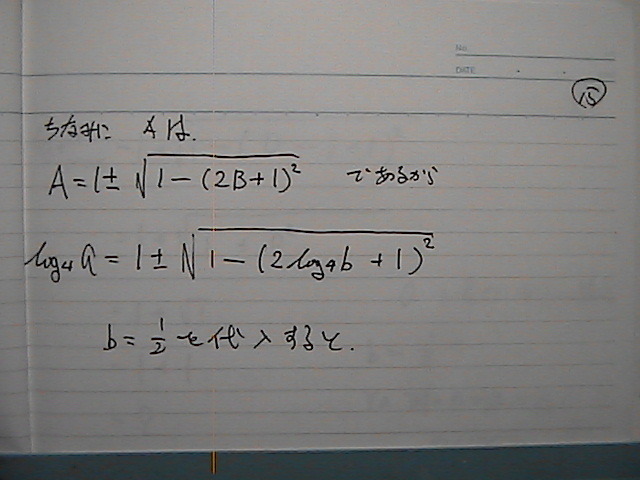 No.
DATE
⑮
ちなみに Aは.
A = 1 ± √1 − (2B+1)² であるから
log₄a = 1 ± √1 − (2log₄b + 1)²
b = 1/2 を代入すると.